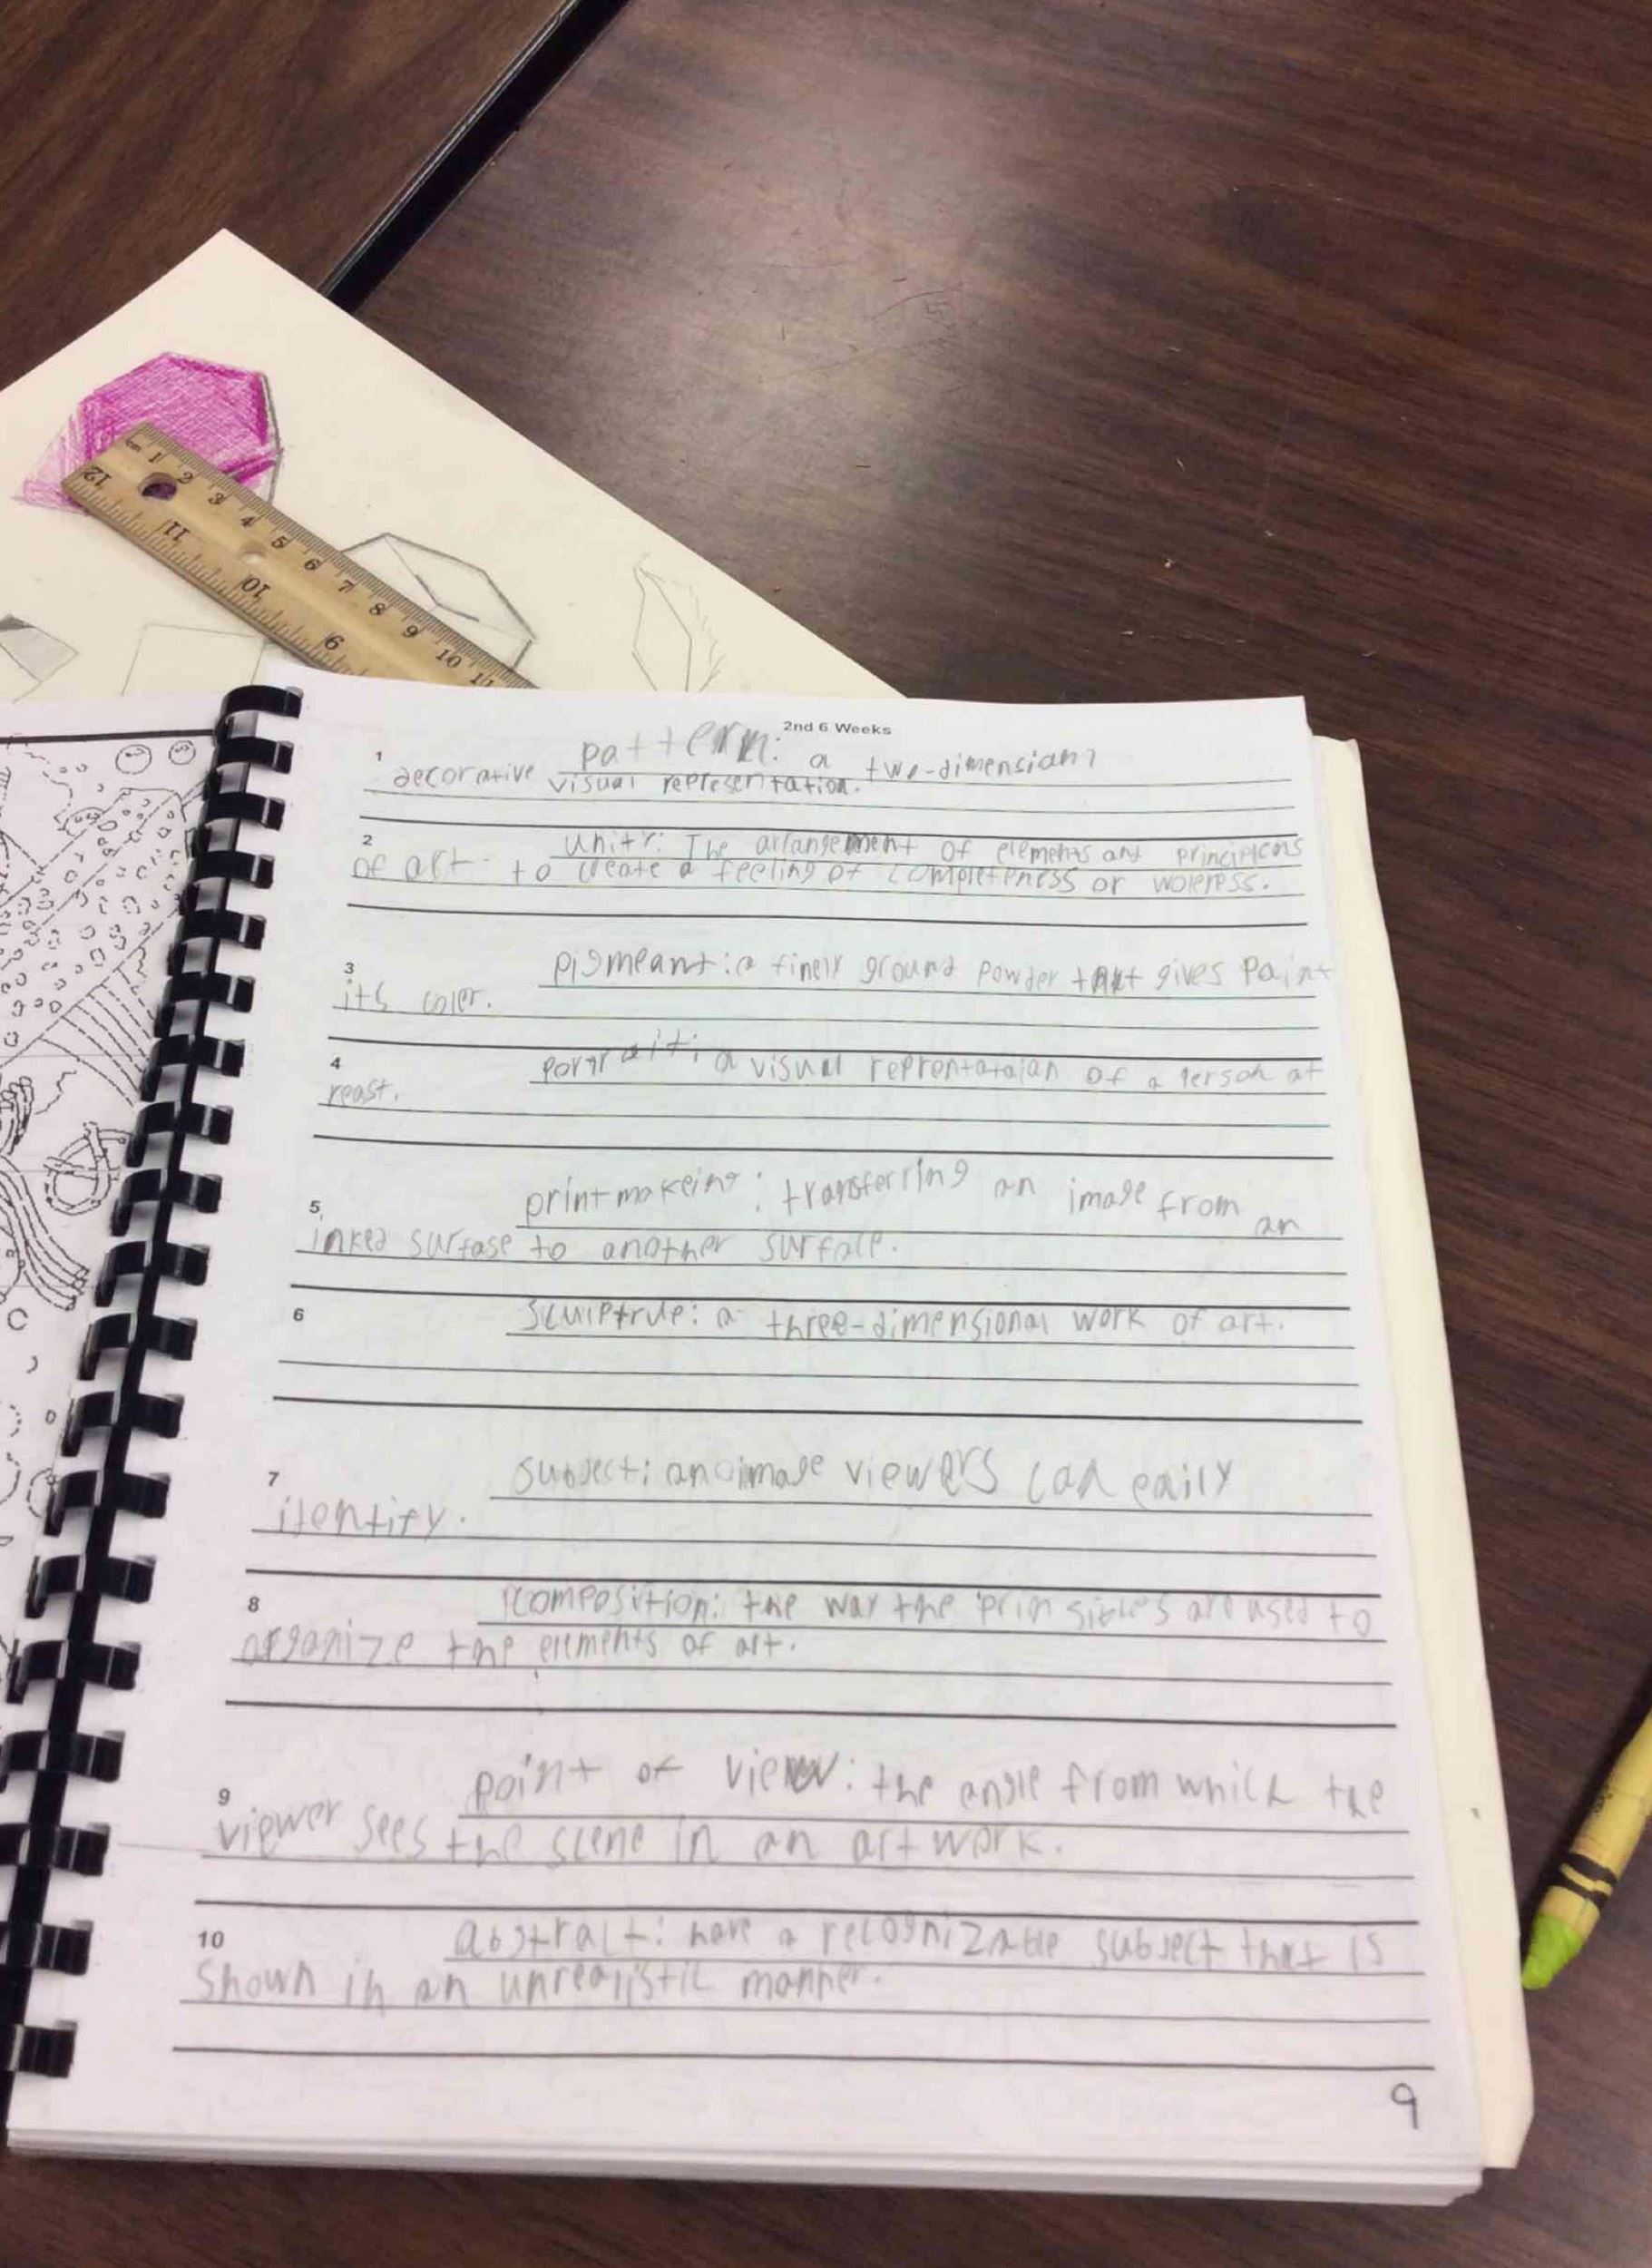 cm 1 2 3 4 5 6 7 8 9 10 11
12 11 10 9
2nd 6 Weeks
1 pattern: a two-dimensional
decorative visual representation.
2 unity: The arrangement of elements and
of art to create a feeling of completeness or
3 pigmeant: a finely ground powder that gives paint
its color.
4 portrait: a visual of a person at
reast.
5 printmakeing: transferring an image from an
inked surfase to another surface.
6 sculptrue: a three-dimensional work of art.
7 subject: an image viewers can eaily
identify.
8 composition: the way the prinsibles are used to
organize the elements of art.
9 point of view: the angle from which the
viewer sees the scene in an artwork.
10 abstract: have a recognizable subject that is
shown in an unrealistic manner.
9